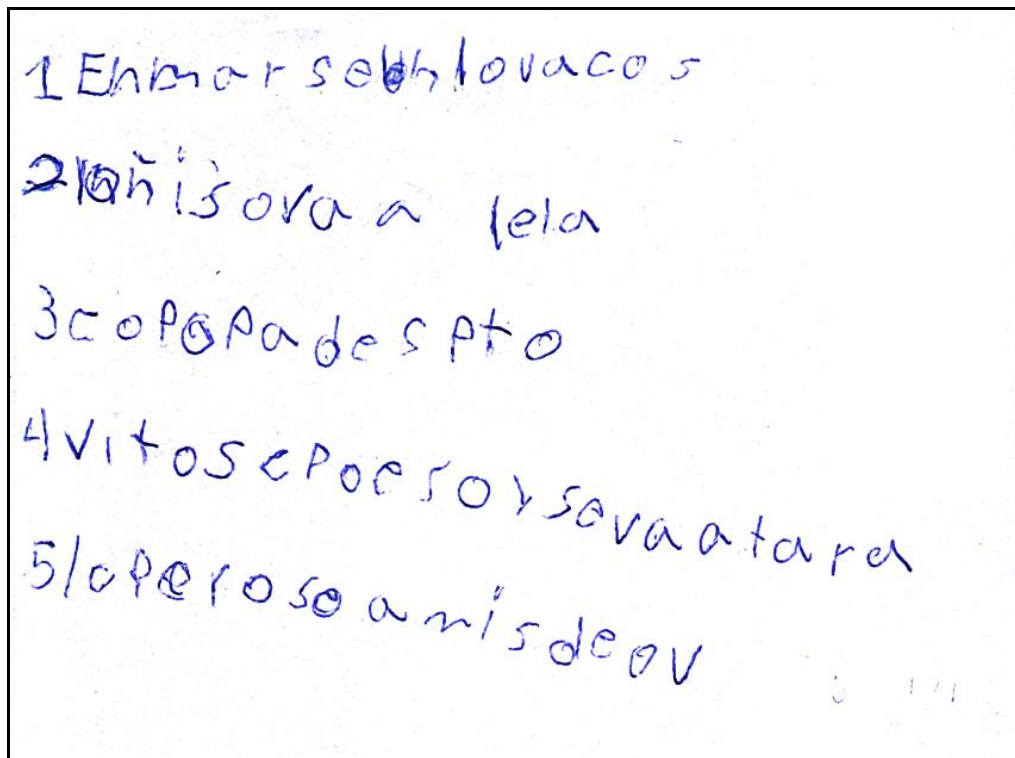 1 Enmarsebnlovacos
2lañisova a lela
3copapadespto
4vitosepoesoysevaatara
5loperosoamisdeov